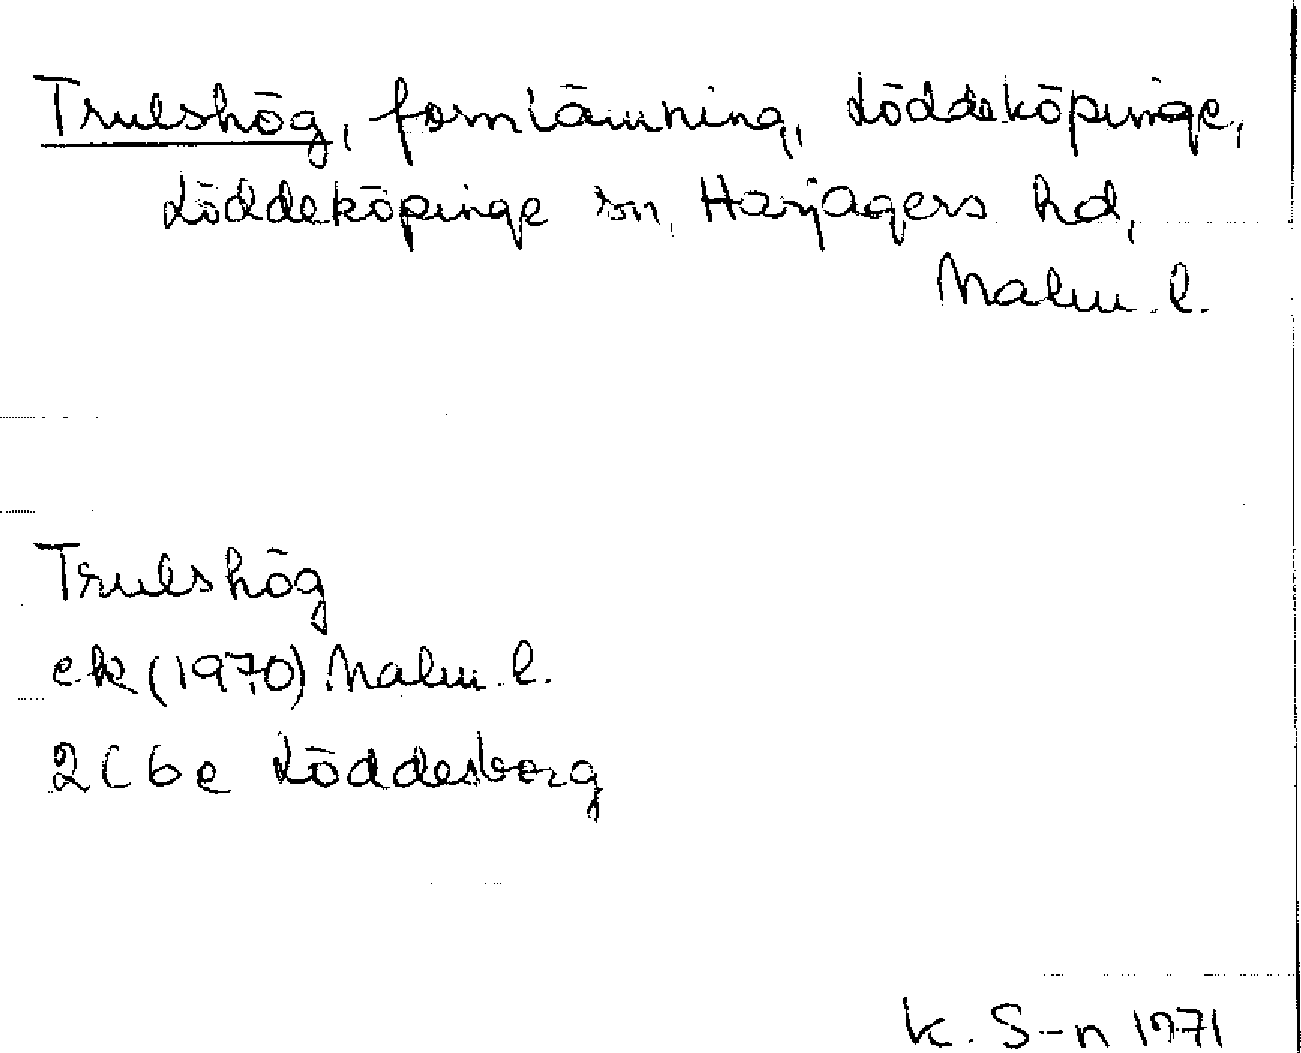 Trulshög, fornlämning, Löddeköpinge,
Löddeköpinge sn, Harjagers hd,
Malm. l.
Trulshög
ek (1970) Malm. l.
2C 6e Löddesborg
K. S-n 1971